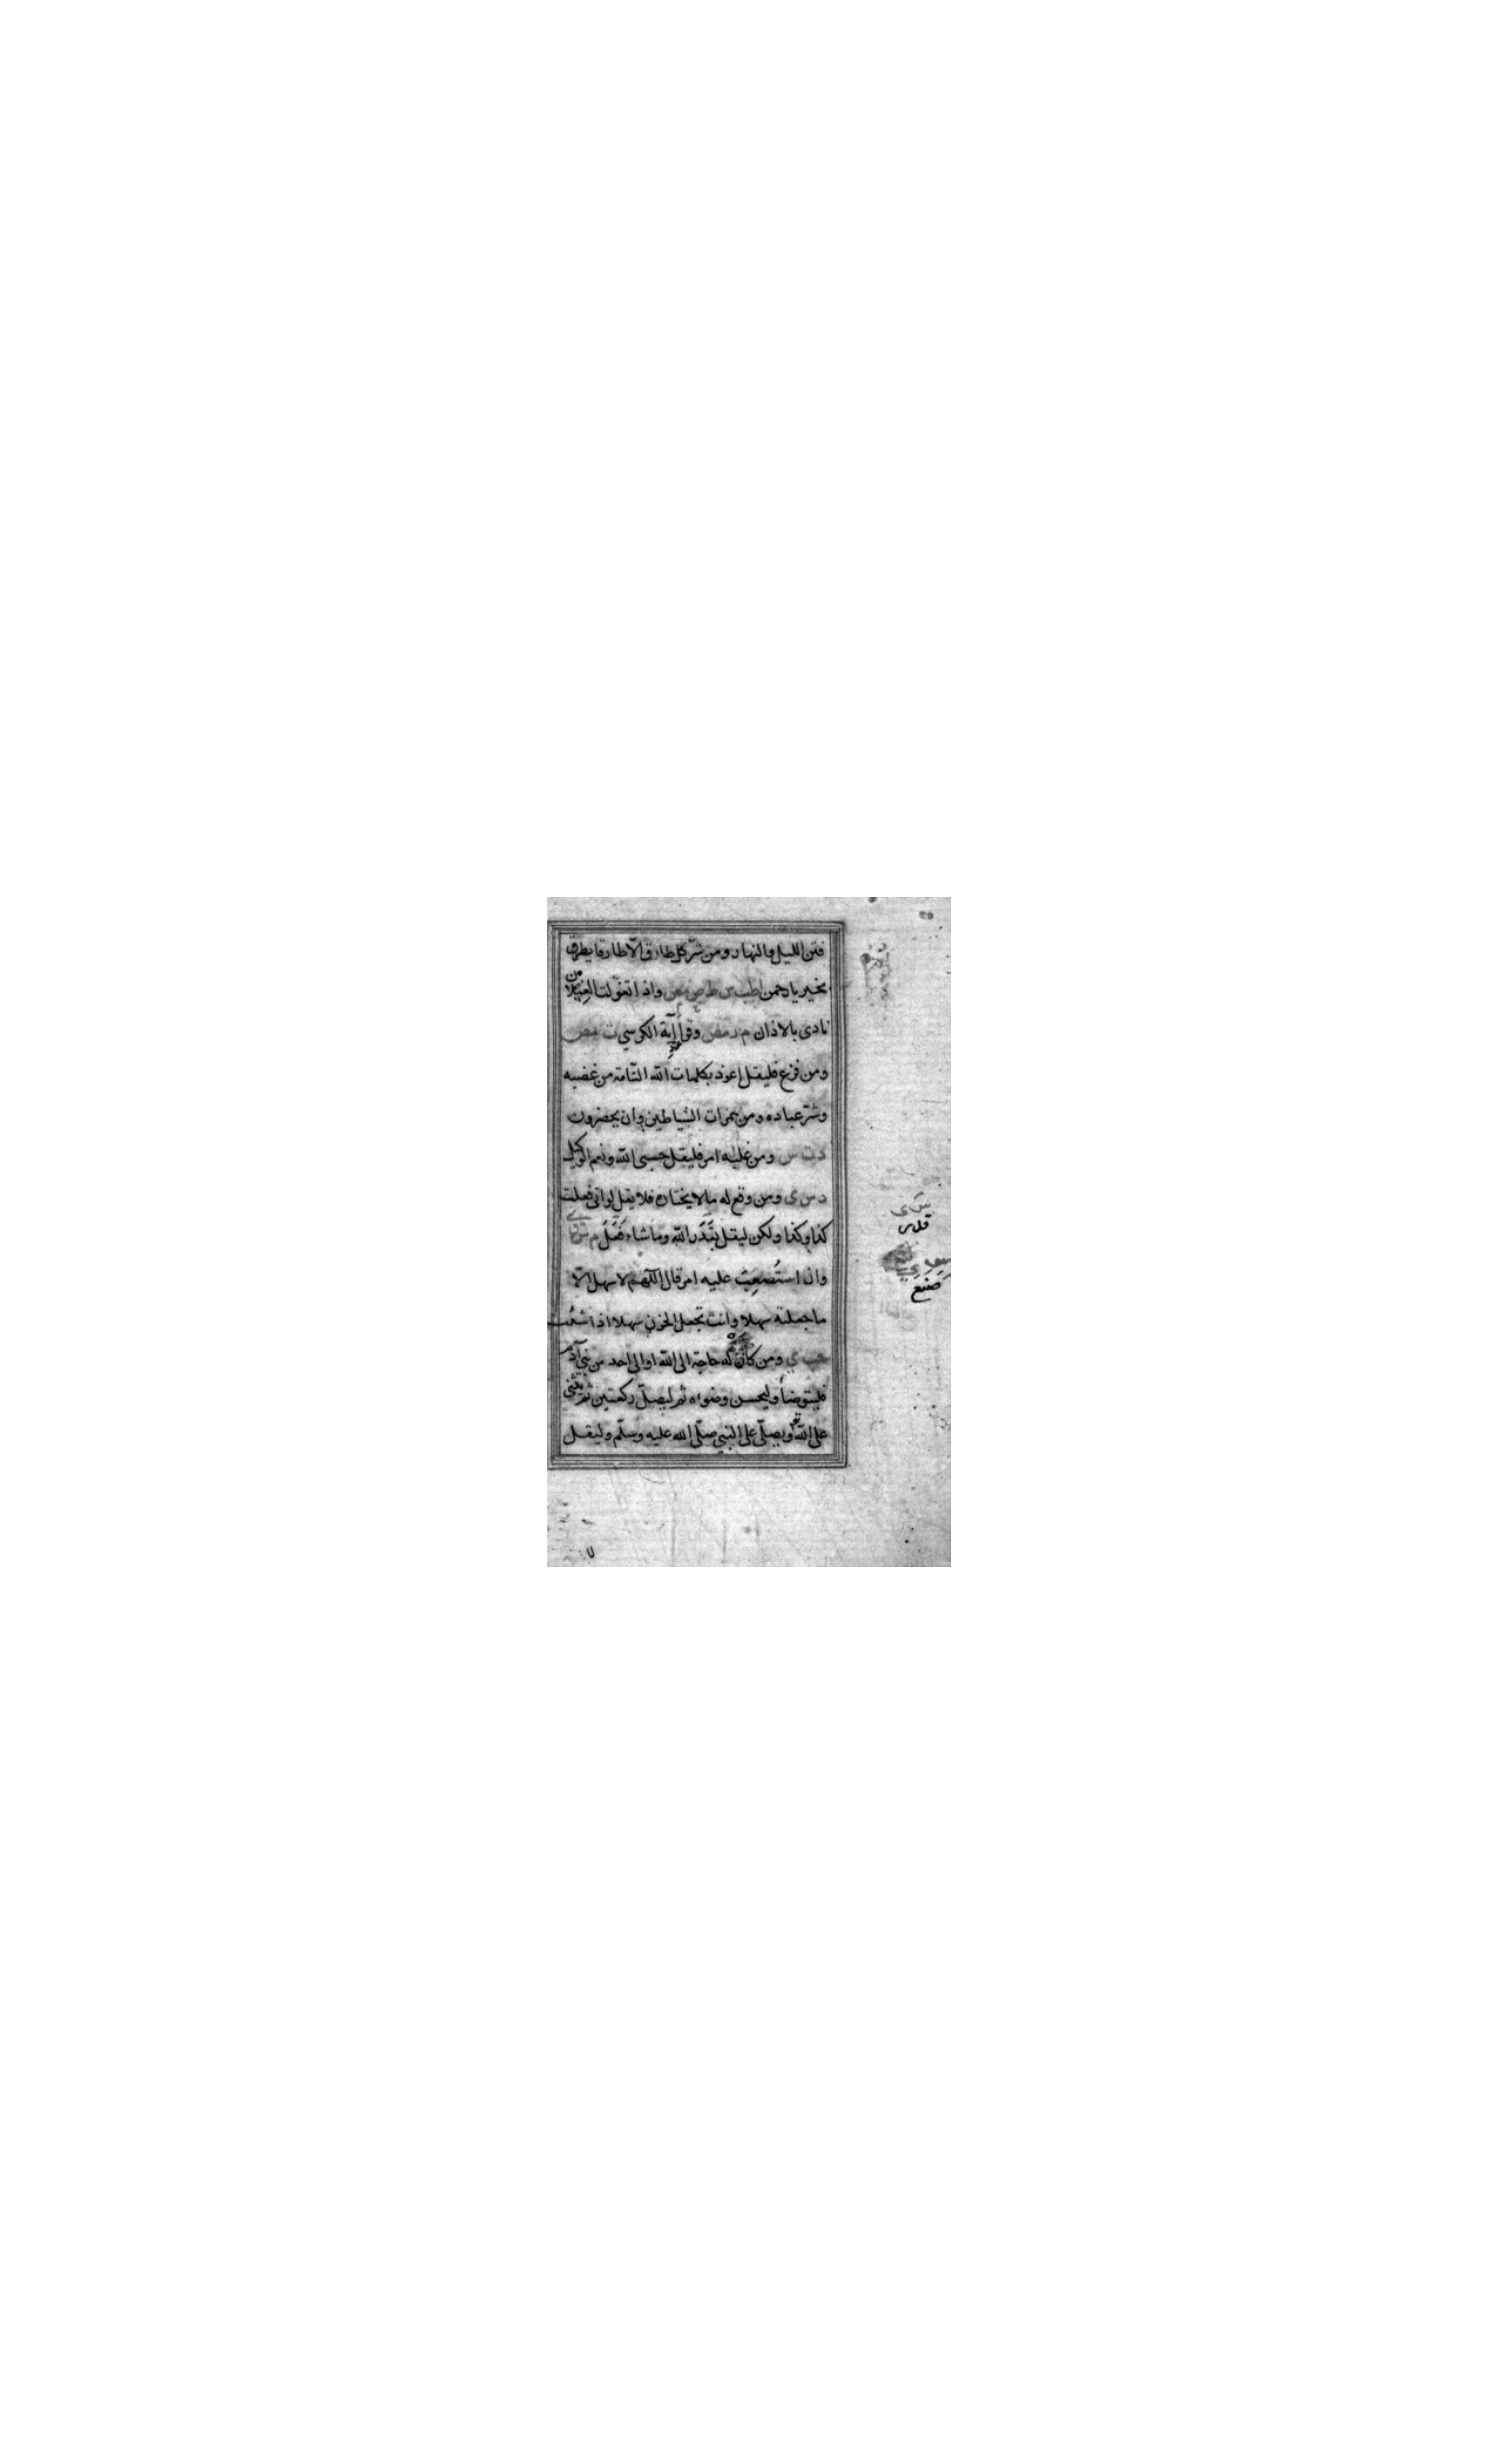 فتن الليل والنهار ومن شر كل طارق الا طارقا يطرق
بخير يا رحمن واذا تغولت الغيلان
نادى بالاذان م ر مص وقرأ آية الكرسي ت مص
ومن فزع فليقل اعوذ بكلمات الله التامة من غضبه
وشر عباده ومن همزات الشياطين وان يحضرون
د ت س ومن غلبه امر فليقل حسبي الله ونعم الوكيل
د س ى ومن وقع له ما لا يختاره فلا يقل لو انى فعلت
كذا وكذا ولكن ليقل بقدر الله وما شاء فعل م س ق ى
وان استصعب عليه امر قال اللهم لا سهل الا
ما جعلته سهلا وانت تجعل الحزن سهلا اذا شئت
حب ي ومن كان له حاجة الى الله او الى احد من بني آدم
فليتوضأ وليحسن وضوءه ثم ليصل ركعتين ثم يثني
على الله ويصلي على النبي صلى الله عليه وسلم وليقل
س ى
صنع